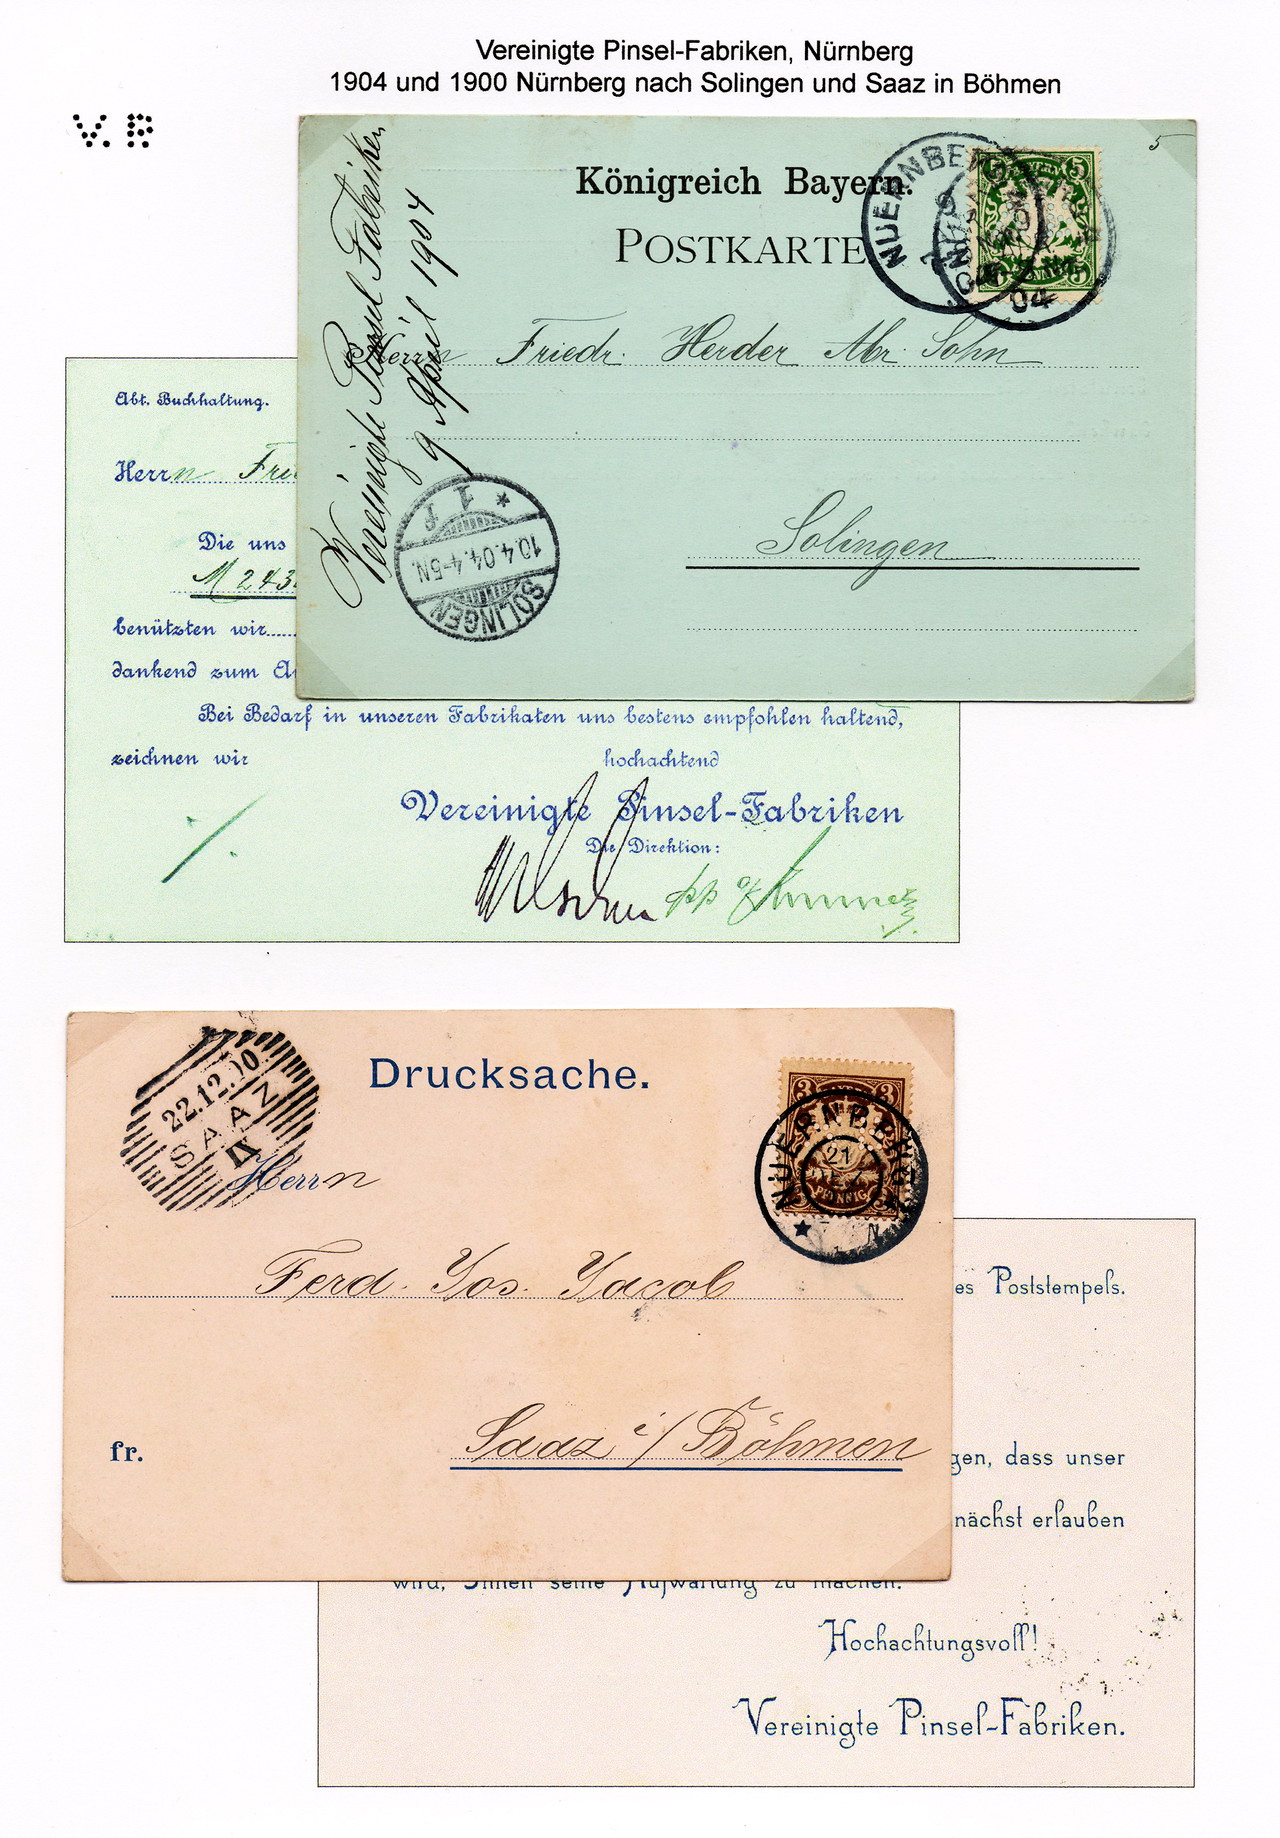 Vereinigte Pinsel-Fabriken, Nürnberg
1904 und 1900 Nürnberg nach Solingen und Saaz in Böhmen
V. P.
Königreich Bayern.
POSTKARTE
NUERNBERG
04
5
5
Vereinigte Pinsel Fabriken
9 April 1904
Herrn Friedr. Herder Abr. Sohn
Solingen
SOLINGEN
10.4.04.4-5N.
* 1 f
Abt. Buchhaltung.
Herrn
Die uns
benützten wir
dankend zum
Bei Bedarf in unseren Fabrikaten uns bestens empfohlen haltend,
zeichnen wir hochachtend
Vereinigte Pinsel-Fabriken
Die Direktion:
Drucksache.
22.12.00
SAAZ
3 3
PFENNIG
NUERNBERG
21
DEZ
Herrn
Ferd. Jos. Jacob
fr.
Saaz i/ Böhmen
es Poststempels.
gen, dass unser
nächst erlauben
wird, Ihnen seine Aufwartung zu machen.
Hochachtungsvoll!
Vereinigte Pinsel-Fabriken.